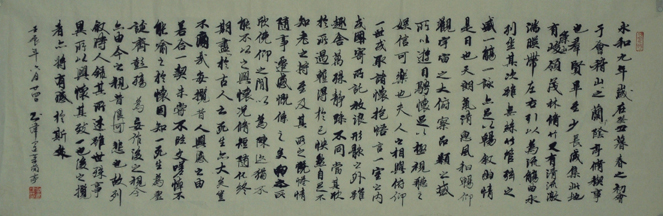 永和九年歲在癸丑暮春之初會
于會稽山之蘭陰脩稧事
也群賢畢至少長咸集此地
有崇山峻領茂林脩竹又有清流激
湍暎帶左右引以為流觴曲水
列坐其次雖無絲竹管絃之
盛一觴一詠亦足以暢敘幽情
是日也天朗氣清惠風和暢仰
觀宇宙之大俯察品類之盛
所以遊目騁懷足以極視聽之
娛信可樂也夫人之相與俯仰
一世或取諸懷抱悟言一室之內
或因寄所託放浪形骸之外雖
趣舍萬殊靜躁不同當其欣
於所遇暫得於己快然自足不
知老之將至及其所之既惓情
隨事遷感慨係之矣向之所
欣俛仰之閒以為陳迹猶不
能不以之興懷況脩短隨化終
期於盡古人云死生亦大矣豈
不痛哉每攬昔人興感之由
若合一契未嘗不臨文嗟悼不
能喻之於懷固知一死生為虛
誕齊彭殤為妄作後之視今
亦由今之視昔悲夫故列
敘時人錄其所述雖世殊事
異所以興懷其致一也後之攬
者亦將有感於斯文
壬辰年八月